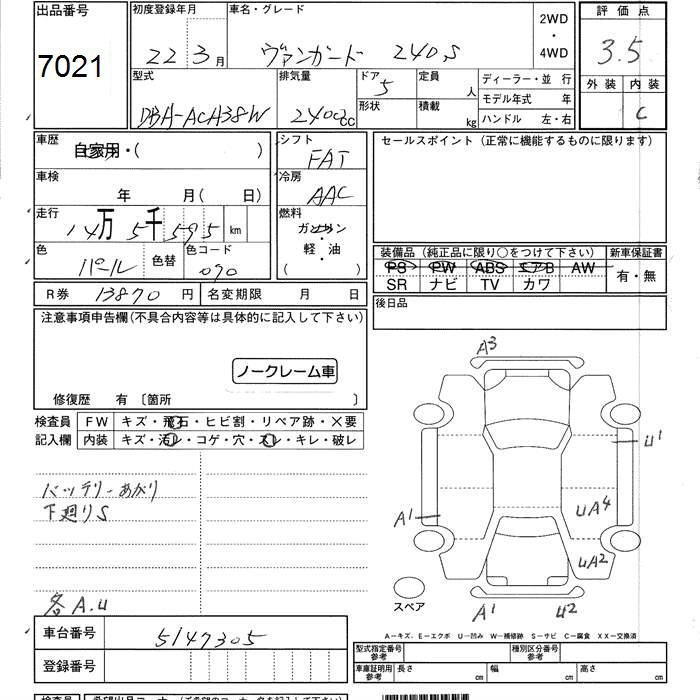 出品番号
7021
初度登録年月
22 3月
車名・グレード
ヴァンガード 240S
2WD
・
4WD
評価点
3.5
外装 内装
C
型式
DBA-ACA38W
排気量
2400cc
ドア
5
形状
定員
人
積載
kg
ディーラー・並行
モデル年式 年
ハンドル 左・右
車歴
自家用・( )
シフト
FAT
セールスポイント (正常に機能するものに限ります)
車検
年 月( 日)
冷房
AAC
走行
14万5千595km
燃料
ガソリン
・
軽・油
( )
色
パール
色替
色コード
070
装備品 (純正品に限り○をつけて下さい)
PS PW ABS エアB AW
SR ナビ TV カワ
新車保証書
有・無
R券 13870円
名変期限 月 日
後日品
注意事項申告欄(不具合内容等は具体的に記入して下さい)
ノークレーム車
修復歴 有 〔箇所 〕
検査員
記入欄
FW キズ・飛石・ヒビ割・リペア跡・X要
内装 キズ・汚レ・コゲ・穴・スレ・キレ・破レ
バッテリーあがり
下廻りS
各A.U
A3
U1
A1
UA4
UA2
A1
U2
スペア
A−キズ、E−エクボ U−凹み W−補修跡 S−サビ C−腐食 XX−交換済
車台番号
5147305
登録番号
型式指定番号
参考
種別区分番号
参考
車庫証明用
参考
長さ cm
幅 cm
高さ cm